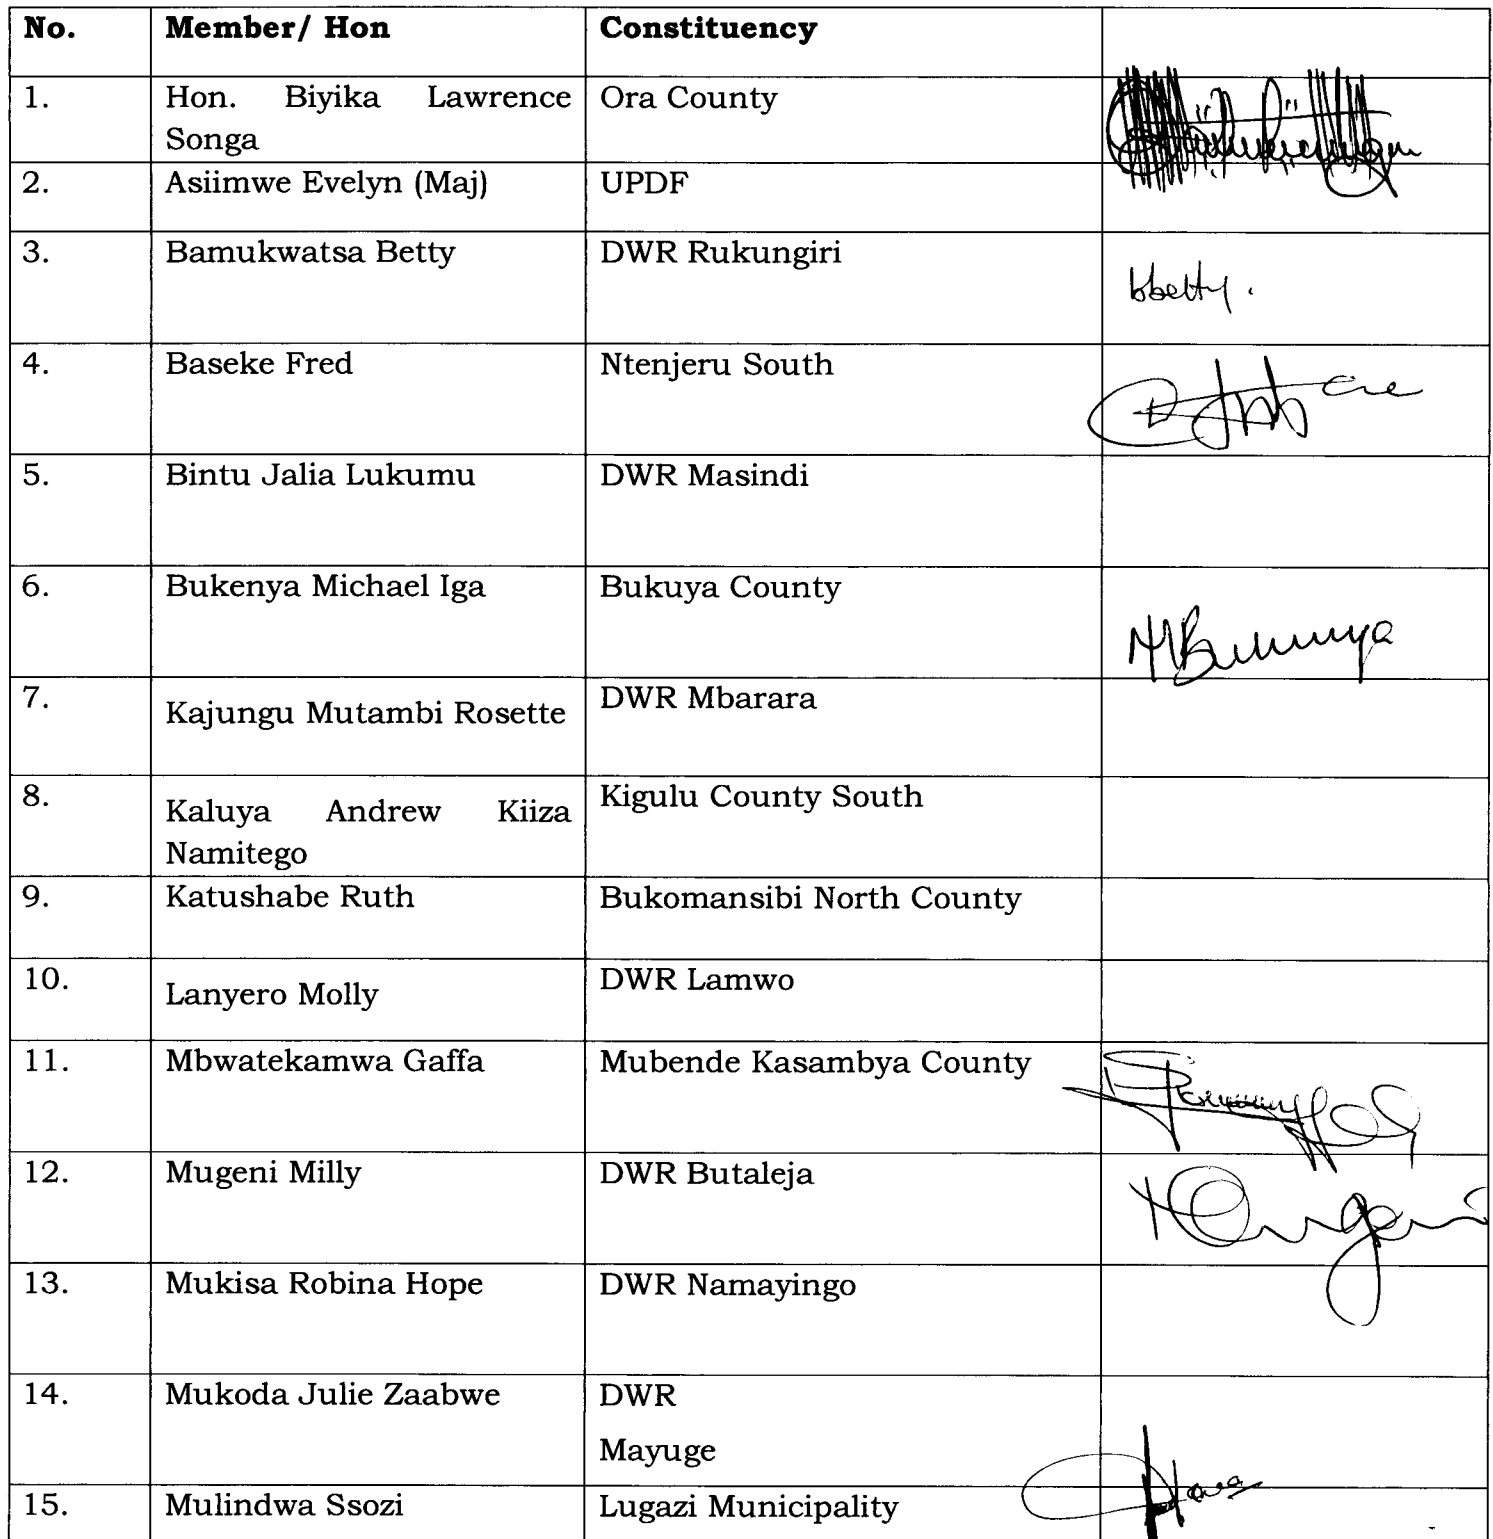 No. Member/ Hon Constituency
1. Hon. Biyika Lawrence Ora County
Songa
2. Asiimwe Evelyn (Maj) UPDF
3. Bamukwatsa Betty DWR Rukungiri
bbetty.
4. Baseke Fred Ntenjeru South
5. Bintu Jalia Lukumu DWR Masindi
6. Bukenya Michael Iga Bukuya County
7. Kajungu Mutambi Rosette DWR Mbarara
8. Kaluya Andrew Kiiza Kigulu County South
Namitego
9. Katushabe Ruth Bukomansibi North County
10. Lanyero Molly DWR Lamwo
11. Mbwatekamwa Gaffa Mubende Kasambya County
12. Mugeni Milly DWR Butaleja
13. Mukisa Robina Hope DWR Namayingo
14. Mukoda Julie Zaabwe DWR
Mayuge
15. Mulindwa Ssozi Lugazi Municipality